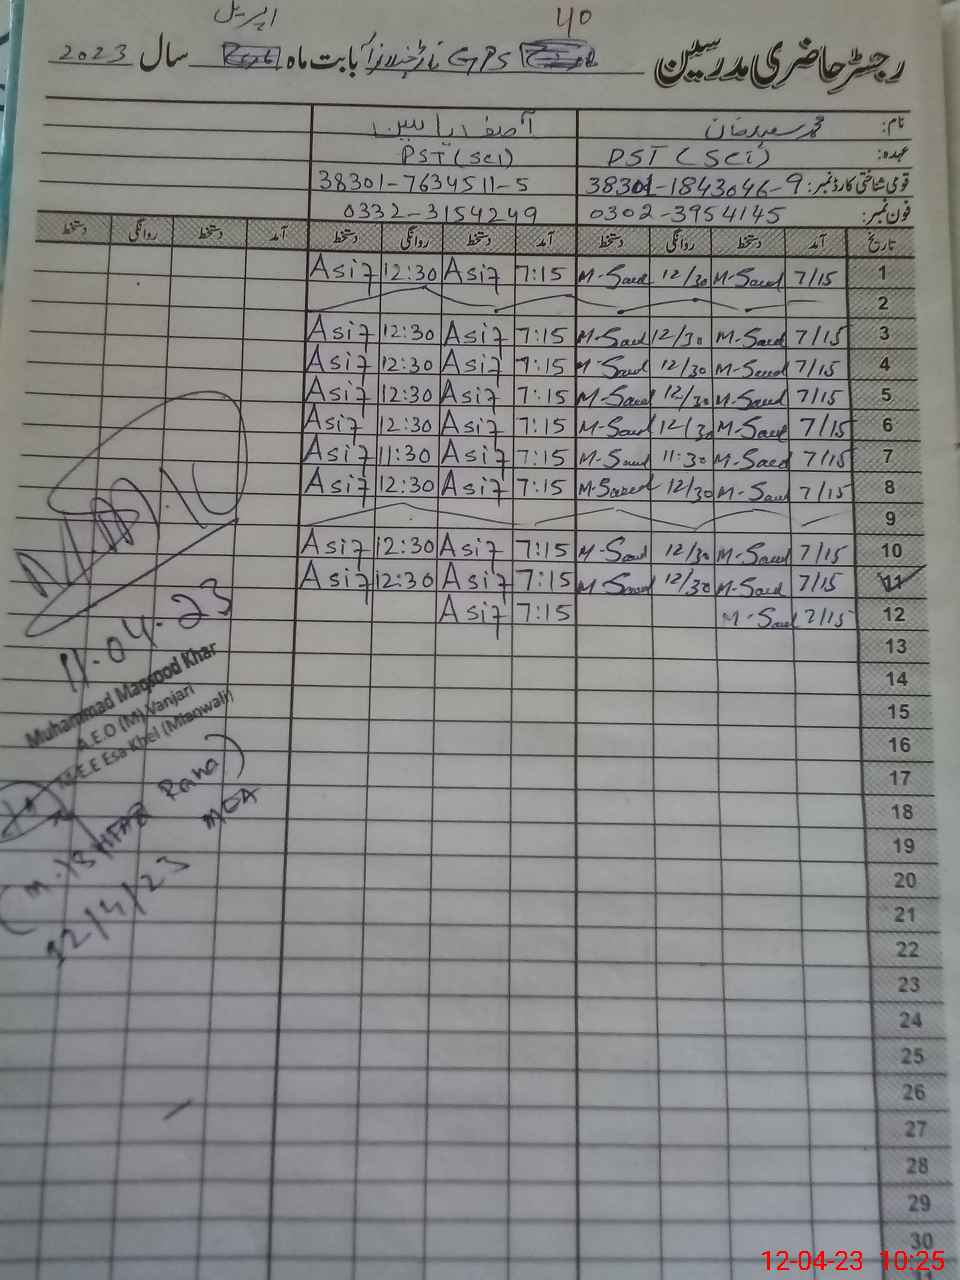 اپریل 40
رجسٹر حاضری مدرسین GPS بابت ماہ سال 2023
نام: محمد سعید خان آصف یاسین
عہدہ: PST (Sci) PST (Sci)
قومی شناختی کارڈ نمبر: 38301-1843046-9 38301-7634511-5
فون نمبر: 0302-3954145 0332-3154249
تاریخ آمد دستخط روانگی دستخط آمد دستخط روانگی دستخط آمد دستخط روانگی دستخط
1 7/15 M-Saed 12/30 M-Saed 7:15 Asif 12:30 Asif
2
3 7/15 M-Saed 12/30 M-Saed 7:15 Asif 12:30 Asif
4 7/15 M-Saed 12/30 M-Saed 7:15 Asif 12:30 Asif
5 7/15 M-Saed 12/30 M-Saed 7:15 Asif 12:30 Asif
6 7/15 M-Saed 12/30 M-Saed 7:15 Asif 12:30 Asif
7 7/15 M-Saed 11:30 M-Saed 7:15 Asif 11:30 Asif
8 7/15 M-Saed 12/30 M-Saeed 7:15 Asif 12:30 Asif
9
10 7/15 M-Saed 12/30 M-Saed 7:15 Asif 12:30 Asif
11 7/15 M-Saed 12/30 M-Saed 7:15 Asif 12:30 Asif
12 7/15 M-Saed 7:15 Asif
13
14
15
16
17
18
19
20
21
22
23
24
25
26
27
28
29
30
11-04-23
Muhammad Maqsood Khar
A.E.O (M) Vanjari
M.E.E Esa Khel (Mianwali)
Rana)
MEA
12/4/23
12-04-23 10:25